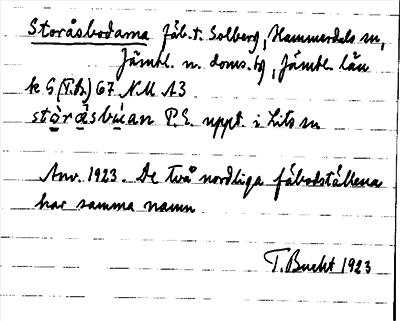 Storåsbodarna fäb. t. Solberg, Hammerdals sn,
Jämtl. n. doms. tg, Jämtl. län
k G (T.B.) 67 NM A3
stòråsbúan P.E. uppt. i Lits sn
Anv. 1923. De två nordliga fäbodställena
har samma namn
T. Bucht 1923